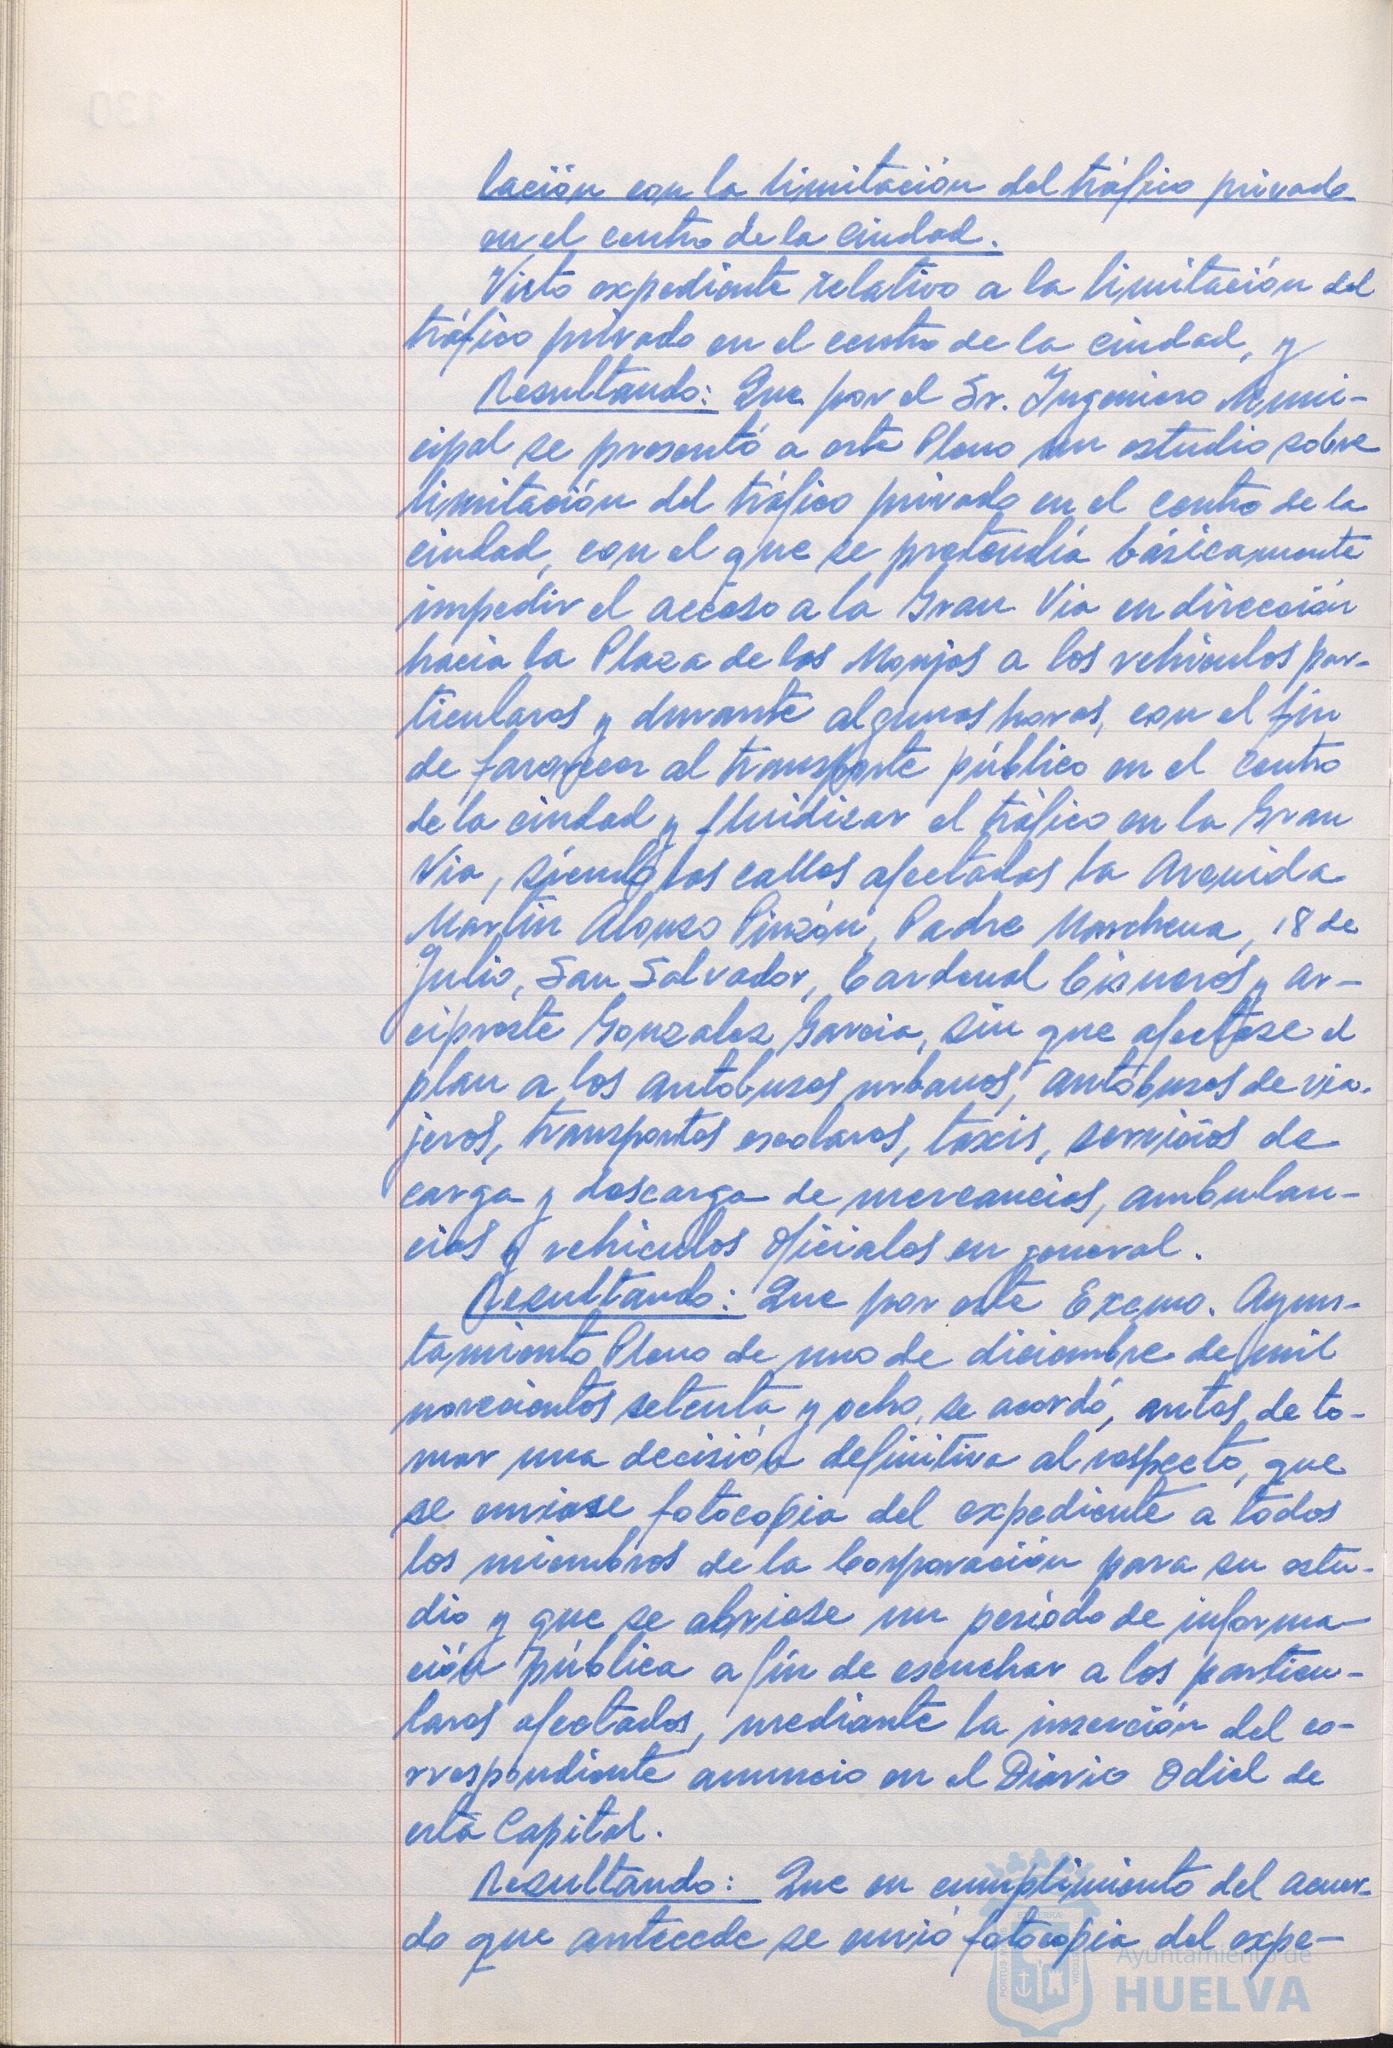 lación con la limitación del tráfico privado
en el centro de la ciudad.
Visto expediente relativo a la limitación del
tráfico privado en el centro de la ciudad, y
Resultando: Que por el Sr. Ingeniero Muni-
cipal se presentó a este Pleno un estudio sobre
limitación del tráfico privado en el centro de la
ciudad, con el que se pretendía básicamente
impedir el acceso a la Gran Via en dirección
hacia la Plaza de las Monjas a los vehiculos par-
ticulares y durante algunas horas, con el fin
de favorecer al transporte público en el centro
de la ciudad y fluidizar el tráfico en la Gran
Via, siendo las calles afectadas la Avenida
Martín Alonso Pinzón, Padre Marchena, 18 de
Julio, San Salvador, Cardenal Cisneros y Ar-
cipreste Gonzalez Garcia, sin que afectase el
plan a los autobuses urbanos, autobuses de via-
jeros, transportes escolares, taxis, servicios de
carga y descarga de mercancias, ambulan-
cias y vehiculos oficiales en general.
Resultando: Que por este Excmo. Ayun-
tamiento Pleno de uno de diciembre de mil
novecientos setenta y ocho, se acordó, antes de to-
mar una decisión definitiva al respecto, que
se enviase fotocopia del expediente a todos
los miembros de la Corporación para su estu-
dio y que se abriese un período de informa-
ción pública a fin de escuchar a los particu-
lares afectados, mediante la inserción del co-
rrespondiente anuncio en el Diario Odiel de
esta Capital.
Resultando: Que en cumplimiento del acuer-
do que antecede se envió fotocopia del expe-
Ayuntamiento de
HUELVA